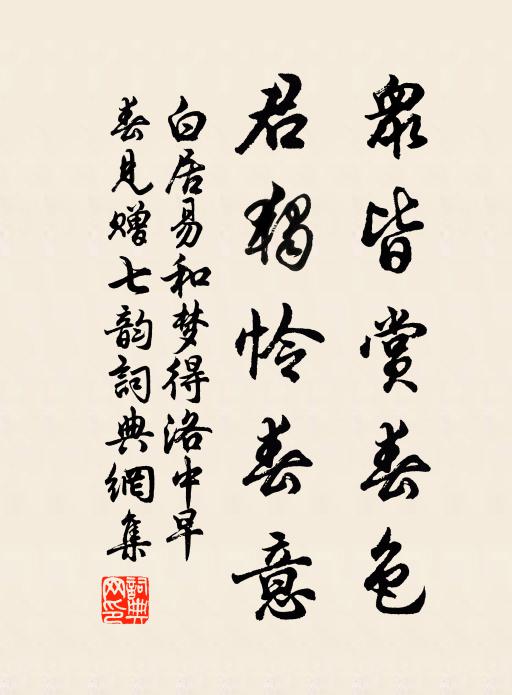 眾皆賞春色
君獨怜春意
白居易和梦得洛中早
春見赠七韵詞典網集
詞典网印